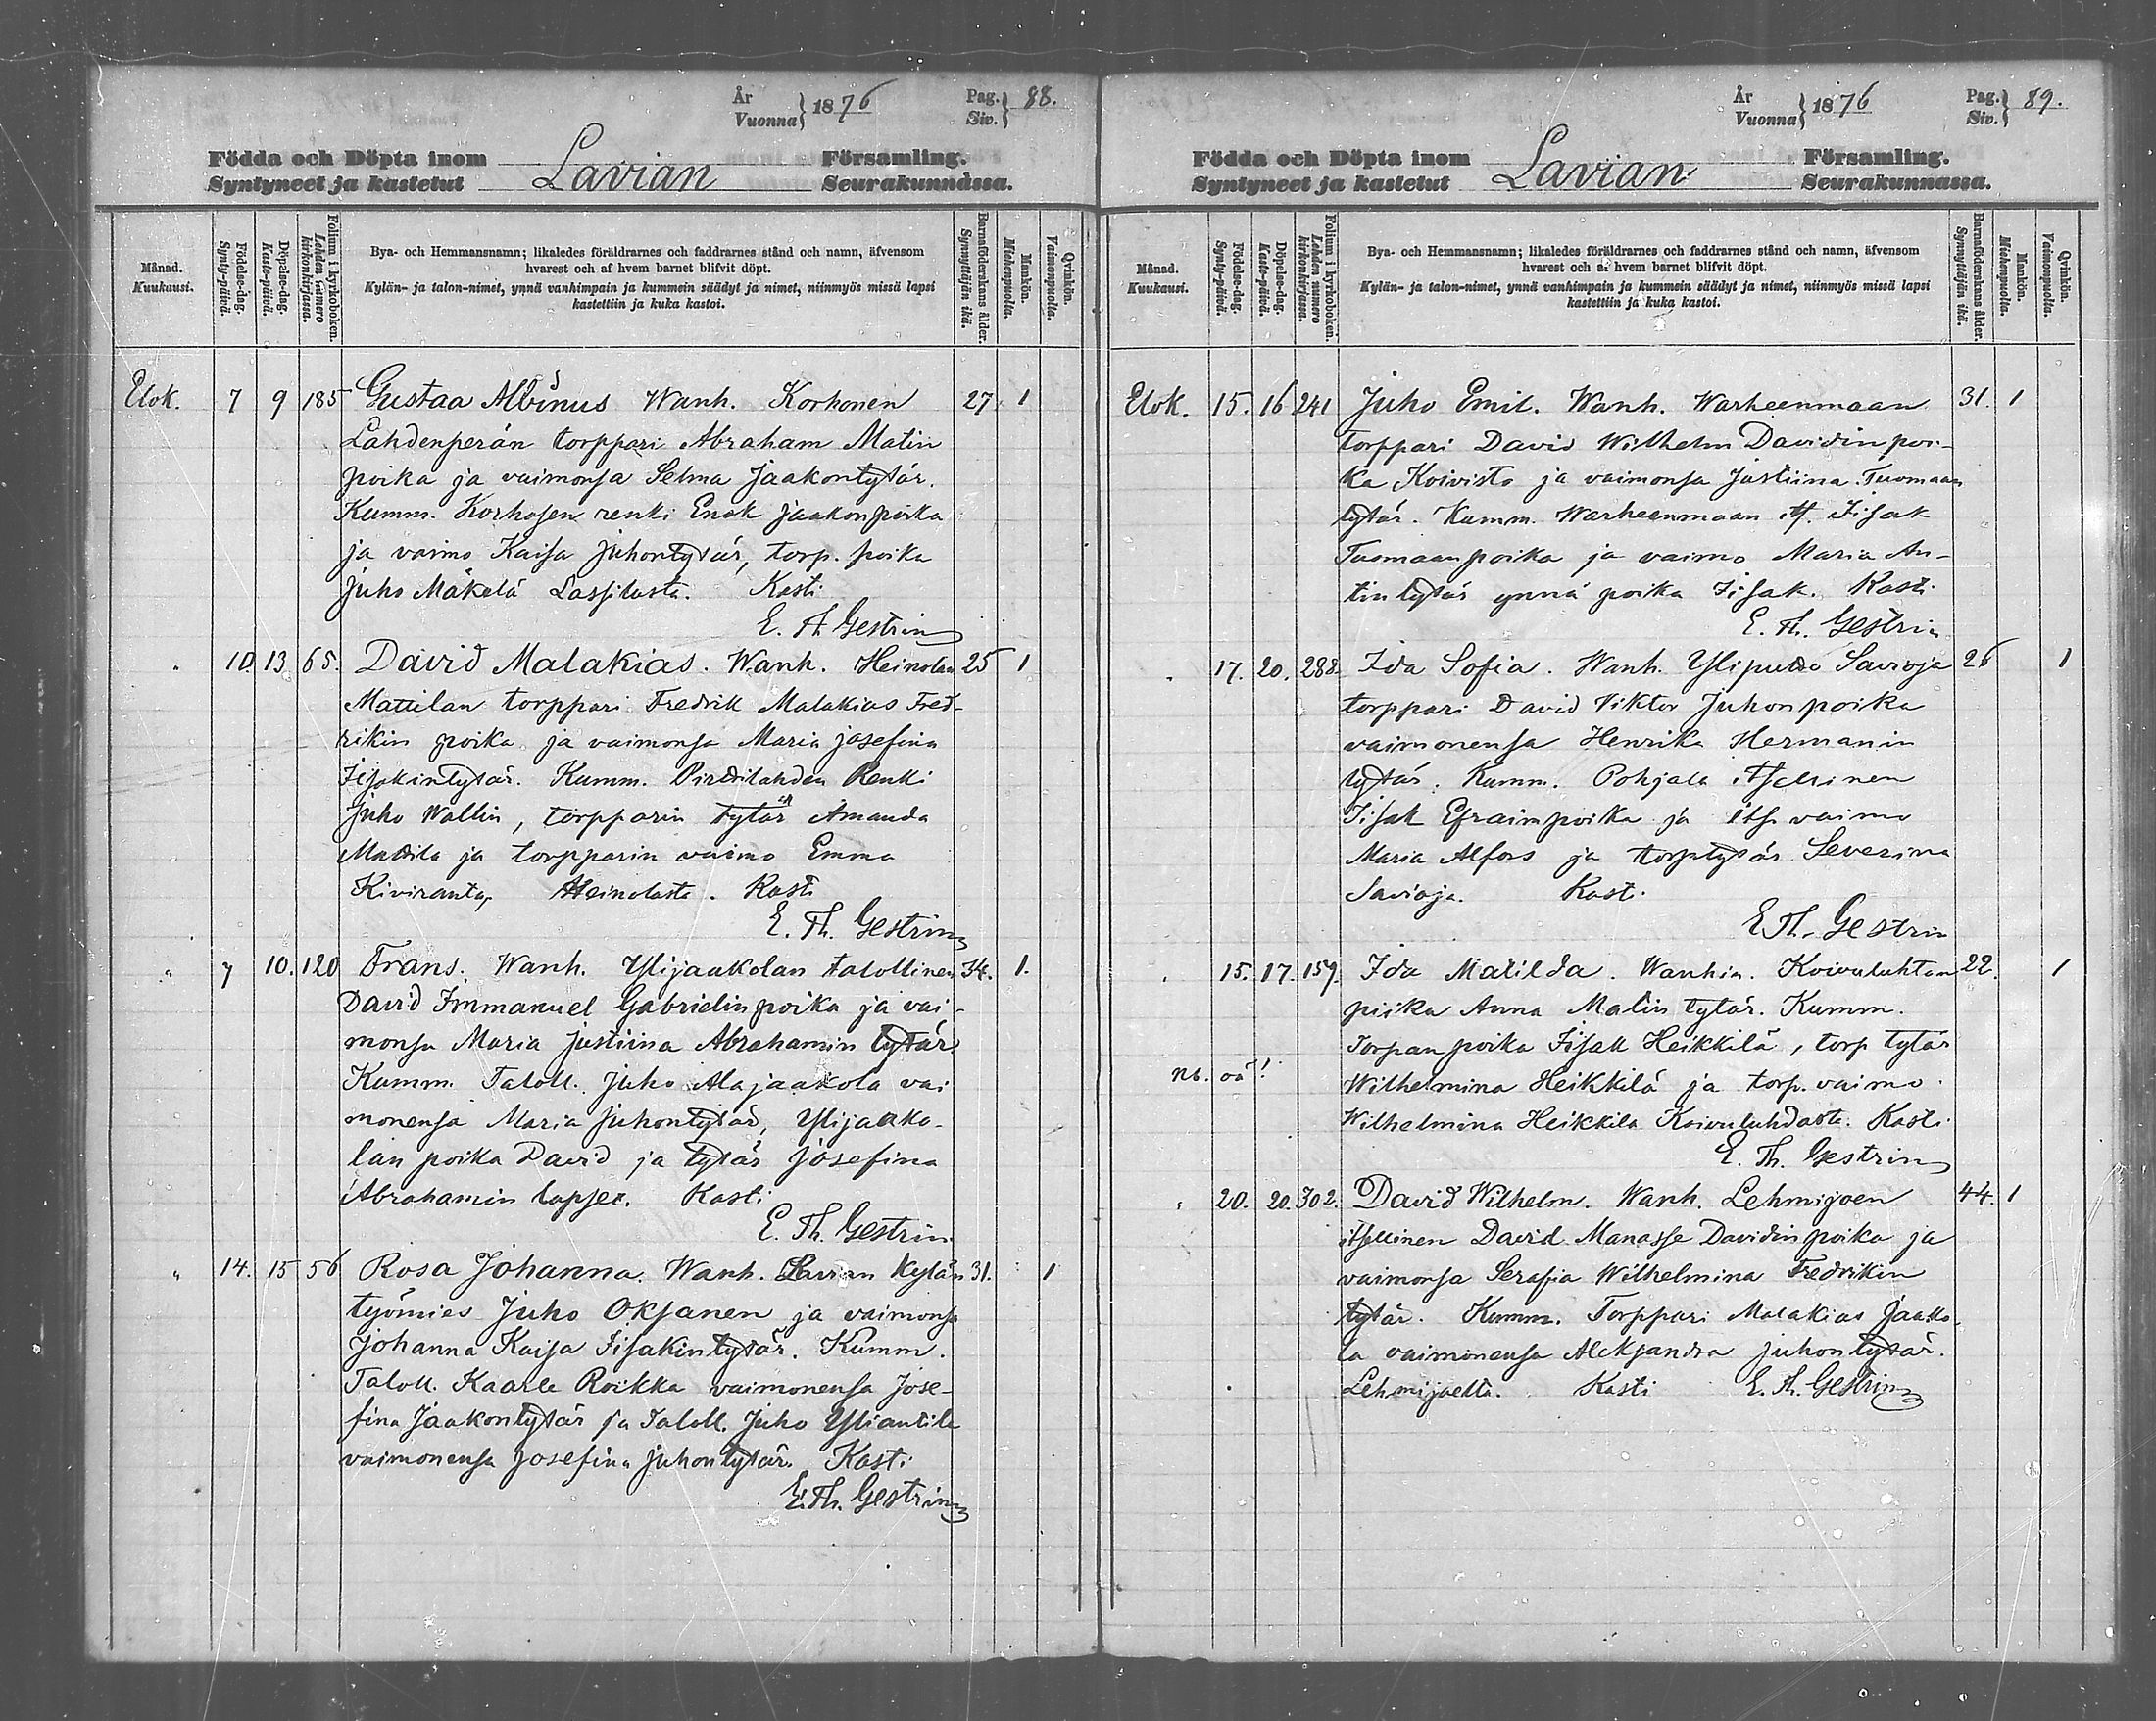 År Vuonna } 1876 Pag. Siv. } 88.
Födda och Döpta inom Församling.
Lavian
Syntyneet ja kastetut Seurakunnassa.
Månad. Kuukausi.
Födelse-dag. Synty-päivä.
Döpelse-dag. Kaste-päivä.
Folium i kyrkoboken. Lehden numero kirkonkirjassa.
Bya- och Hemmansnamn; likaledes föräldrarnes och faddrarnes stånd och namn, äfvensom
hvarest och af hvem barnet blifvit döpt.
Kylän- ja talon-nimet, ynnä vanhimpain ja kummein säädyt ja nimet, niinmyös missä lapsi
kastettiin ja kuka kastoi.
Barnaföderskans ålder. Synnyttäjän ikä.
Mankön. Miehenpuolta.
Qvinkön. Vaimonpuolta.
Elok. 7 9 185 Gustaa Albinus Wanh. Korhonen 27 1
Lahdenperän torppari Abraham Matin
poika ja vaimonsa Selma Jaakontytär.
Kumm. Korhosen renki Enok Jaakonpoika
ja vaimo Kaisa Juhontytär, torp. poika
Juho Mäkelä Lassilasta. Kasti
E. Th Gestrin
" 10. 13 65. David Malakias. Wanh. Heinolan 25 1
Mattilan torppari Fredrik Malakias Fred-
rikin poika ja vaimonsa Maria Josefina
Iisakintytär. Kumm. Renki
Juho Wallin, torpparin tytär Amanda
Mattila ja torpparin vaimo Emma
Kiviranta, Heinolasta. Kasti
E. Th. Gestrin
" 7 10. 120 Frans. Wanh. Ylijaakolan talollinen 34. 1.
David Immanuel Gabrielin poika ja vai-
monsa Maria Justiina Abrahamin tytär
Kumm. Taloll. Juho Alajaakola vai
monensa Maria Juhontytär, Ylijaako-
lan poika David ja tytär Josefina
Abrahamin lapset. Kasti
E. Th. Gestrin
" 14. 15 56 Rosa Johanna. Wanh. Lavian Kylän 31. 1
työmies Juho Oksanen ja vaimonsa
Johanna Kaisa Iisakintytär. Kumm.
Taloll. Kaarle Roikka vaimonensa Jose-
fina Jaakontytär ja Taloll. Juho Yliantila
vaimonensa Josefina Juhontytär. Kasti
E. Th. Gestrin
År Vuonna } 1876 Pag. Siv. } 89.
Födda och Döpta inom Församling.
Lavian
Syntyneet ja kastetut Seurakunnassa.
Månad. Kuukausi.
Födelse-dag. Synty-päivä.
Döpelse-dag. Kaste-päivä.
Folium i kyrkoboken. Lehden numero kirkonkirjassa.
Bya- och Hemmansnamn; likaledes föräldrarnes och faddrarnes stånd och namn, äfvensom
hvarest och af hvem barnet blifvit döpt.
Kylän- ja talon-nimet, ynnä vanhimpain ja kummein säädyt ja nimet, niinmyös missä lapsi
kastettiin ja kuka kastoi.
Barnaföderskans ålder. Synnyttäjän ikä.
Mankön. Miehenpuolta.
Qvinkön. Vaimonpuolta.
Elok. 15. 16 241 Juho Emil. Wanh. Warheenmaan 31. 1
torppari David Wilhelm Davidin poi-
ka Koivisto ja vaimonsa Justiina Tuomaan
tytär. Kumm. Warheenmaan its. Iisak
Tuomaanpoika ja vaimo Maria An-
tintytär ynnä poika Iisak. Kasti
E. Th. Gestrin
" 17. 20. 288. Ida Sofia. Wanh. Savioja 26 1
torppari David Viktor Juhonpoika
vaimonensa Henrika Hermanin
tytär. Kumm. Pohjala itsellinen
Iisak Efraimpoika ja its. vaimo
Maria Alfors ja torp.tytär Severina
Savioja. Kasti
E. Th. Gestrin
" 15. 17. 159. Ida Matilda. Wanhin. Koivuluhtan 22. 1
piika Anna Matin tytär. Kumm.
Torpan poika Iisak Heikkilä, torp tytär
Nb. oä! Wilhelmina Heikkilä ja torp. vaimo
Wilhelmina Heikkilä Koivuluhdasta. Kasti
E. Th. Gestrin
" 20. 20. 302. David Wilhelm. Wanh. Lehmijoen 44. 1
itsellinen David Manasse Davidin poika ja
vaimonsa Serafia Wilhelmina Fredrikin
tytär. Kumm. Torppari Malakias Jaako-
la vaimonensa Aleksandra Juhontytär.
Lehmijoelta. Kasti E. Th. Gestrin